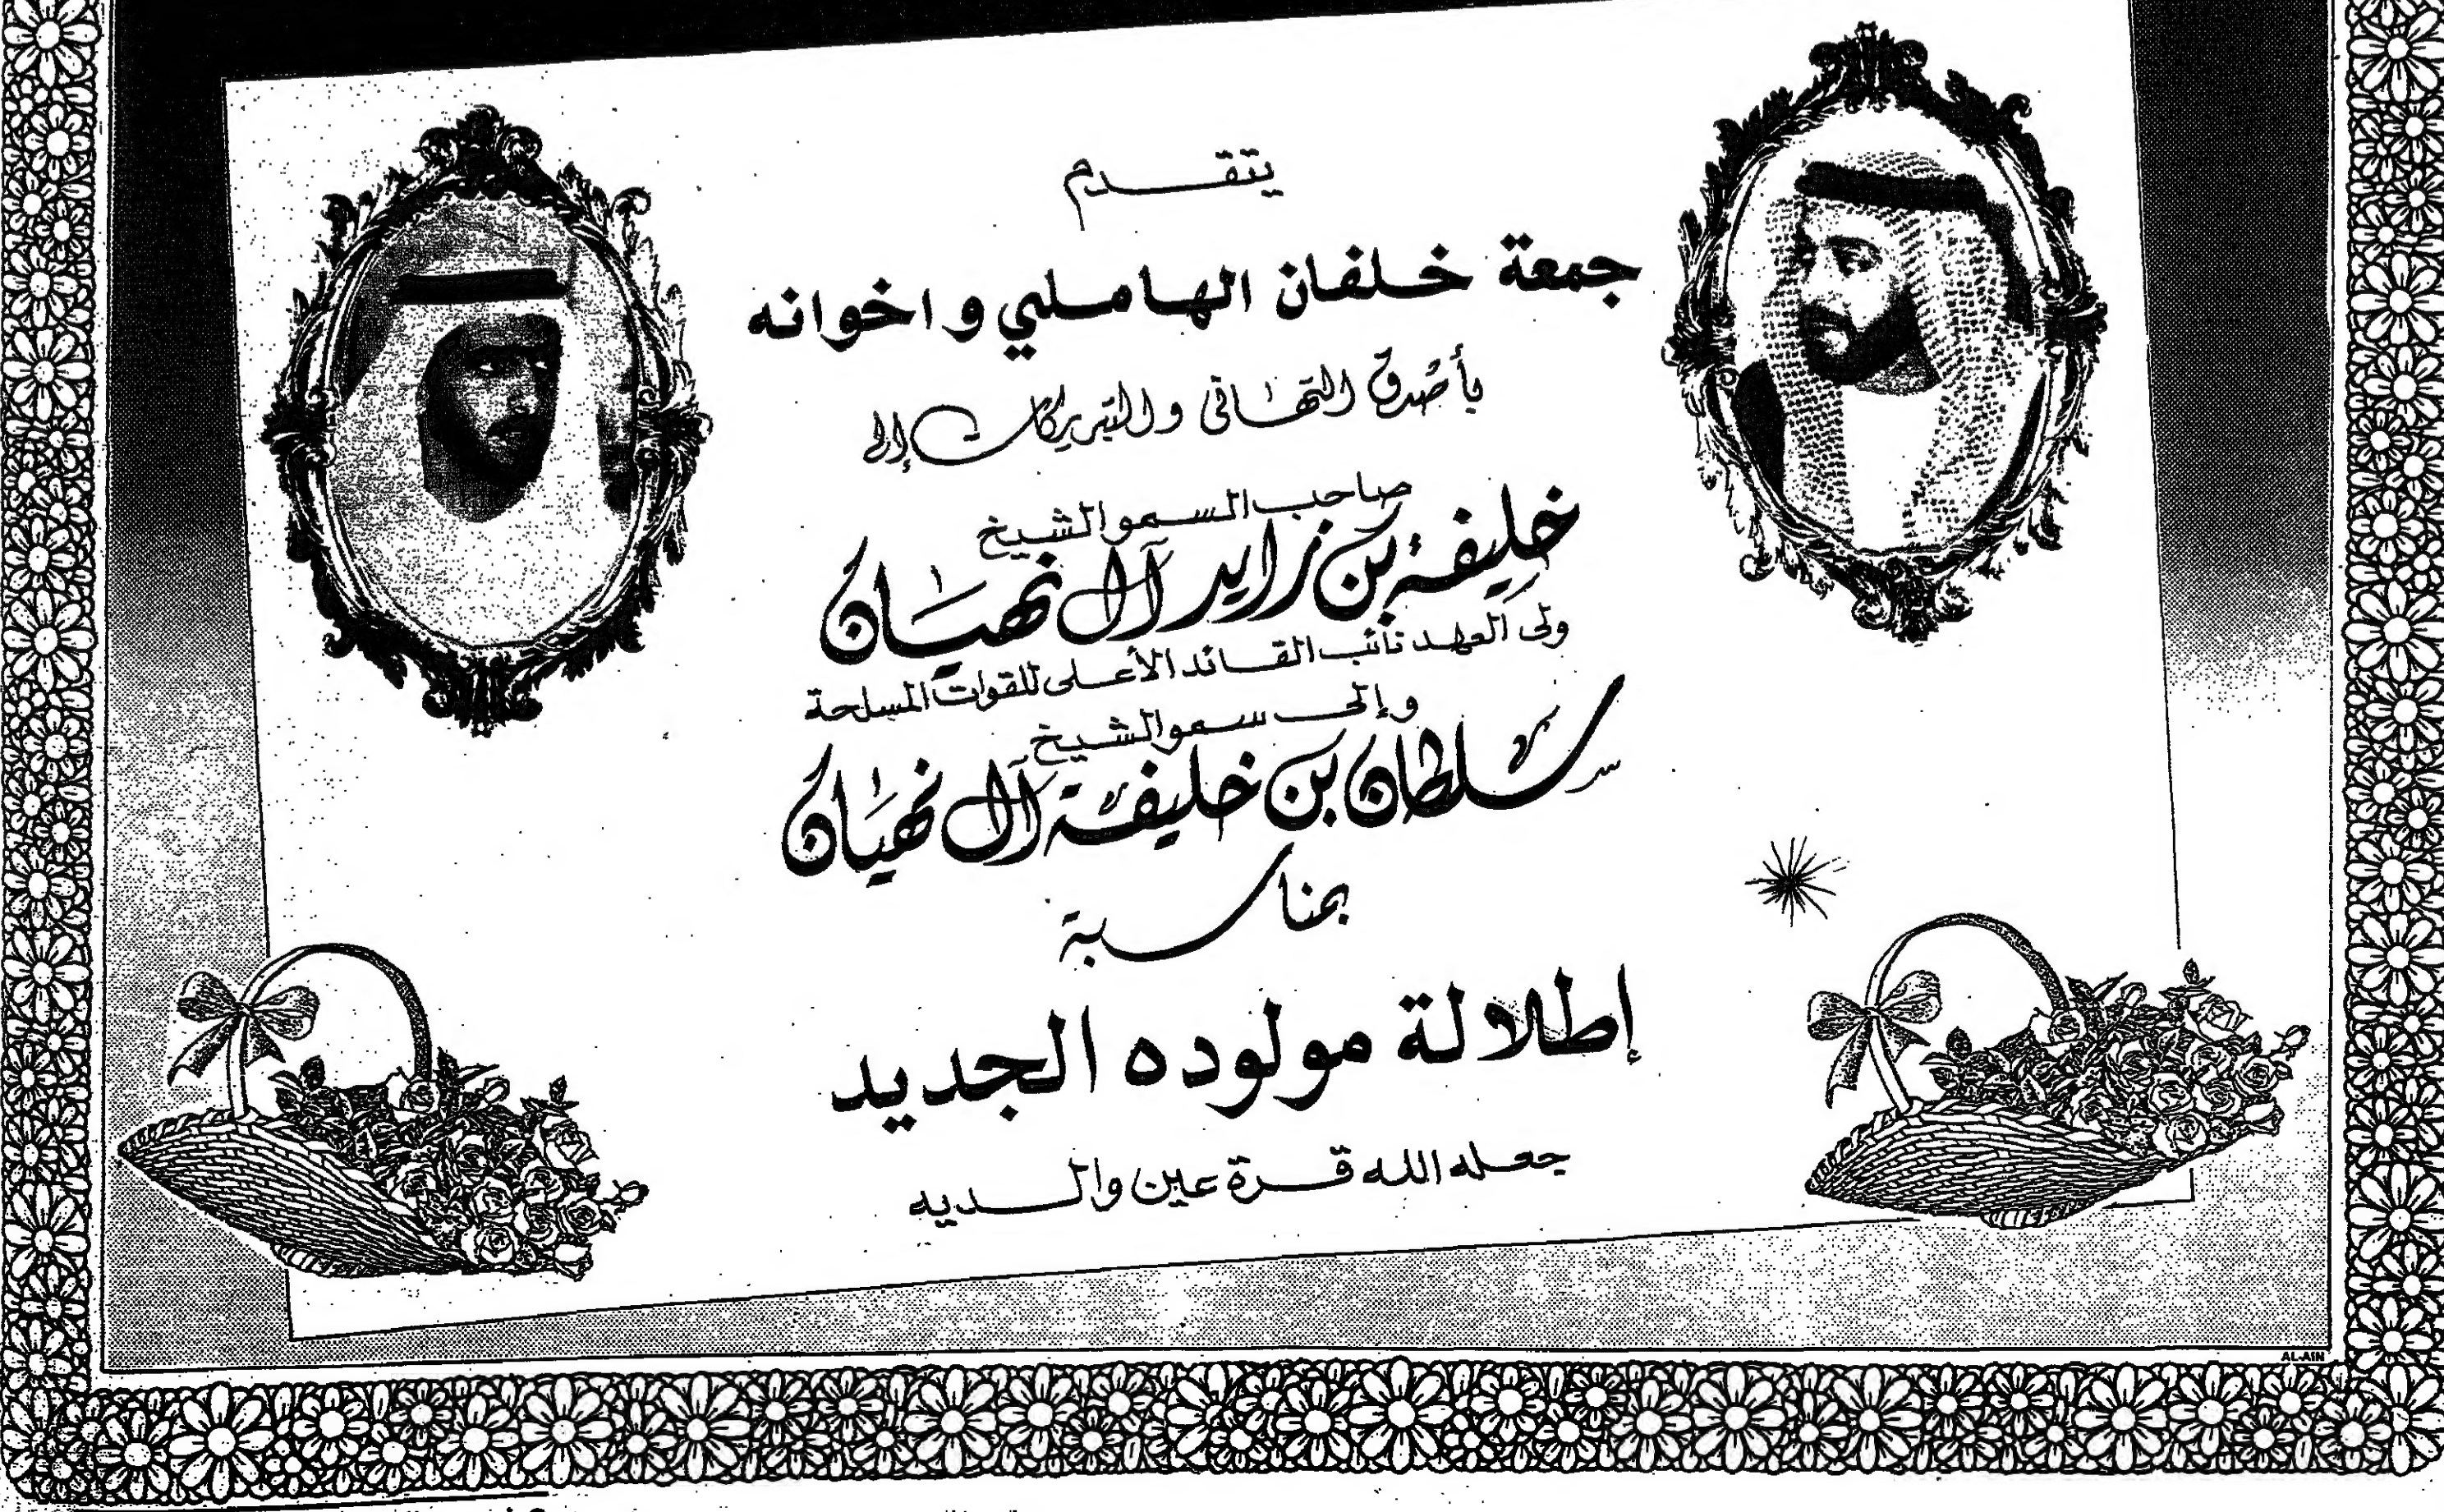 يتقدم
جمعة خلفان الهاملي واخوانه
بأصدق التهاني والتبريكات إلى
صاحب السمو الشيخ
خليفة بن زايد آل نهيان
ولي العهد نائب القائد الأعلى للقوات المسلحة
وإلى سمو الشيخ
سلطان بن خليفة آل نهيان
بمناسبة
إطلالة مولوده الجديد
جعله الله قرة عين والديه
AL-AIN